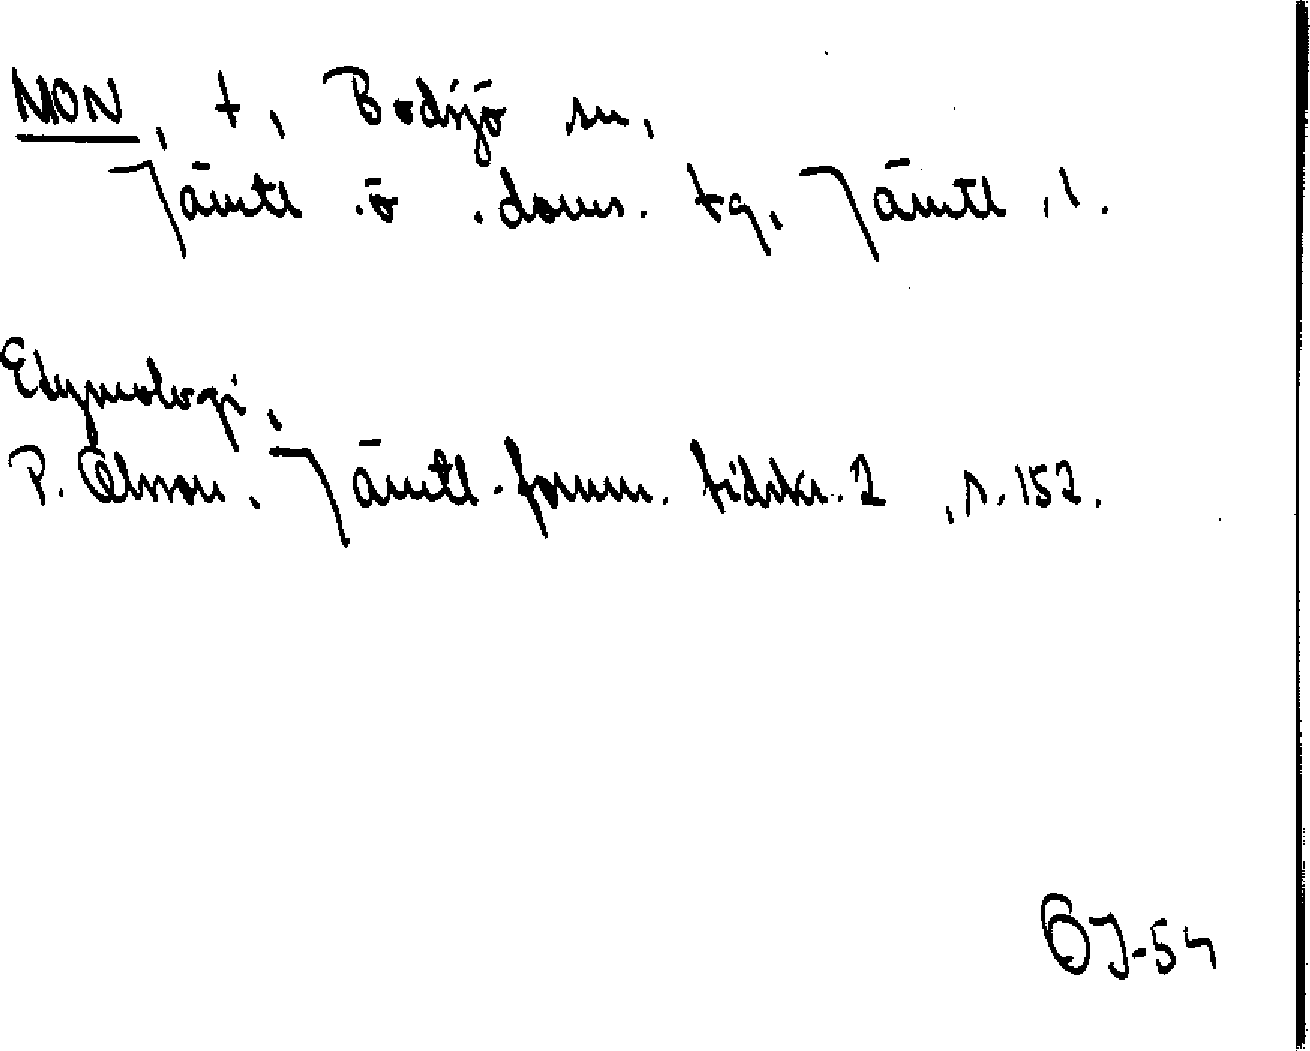 MON, t, Bodsjö sn,
Jämtl. ö. doms. tg, Jämtl. l.
Etymologi,
P. Olsson, Jämtl. fornm. tidskr. 2, s. 152.